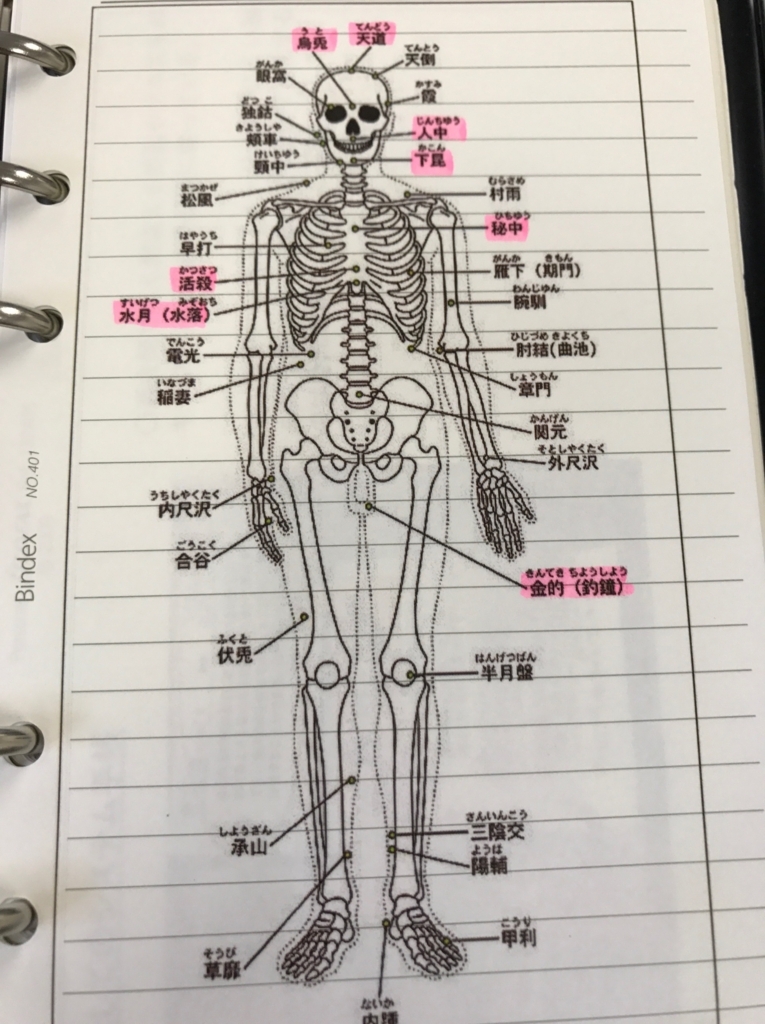 うと
烏兎
てんどう
天道
てんとう
天倒
がんか
眼窩
かすみ
霞
どつこ
独鈷
きようしや
頬車
じんちゆう
人中
けいちゆう
頸中
かこん
下昆
まつかぜ
松風
むらさめ
村雨
ひちゆう
秘中
はやうち
早打
がんか きもん
雁下(期門)
かつさつ
活殺
わんじゆん
腕馴
すいげつ みぞおち
水月(水落)
でんこう
電光
ひじづめ きよくち
肘結(曲池)
いなづま
稲妻
しょうもん
章門
かんげん
関元
そとしやくたく
外尺沢
うちしやくたく
内尺沢
ごうこく
合谷
きんてき ちようしよう
金的(釣鐘)
ふくと
伏兎
はんげつばん
半月盤
しようざん
承山
さんいんこう
三陰交
ようほ
陽輔
そうび
草靡
こうり
甲利
ないか
内踝
Bindex NO.401